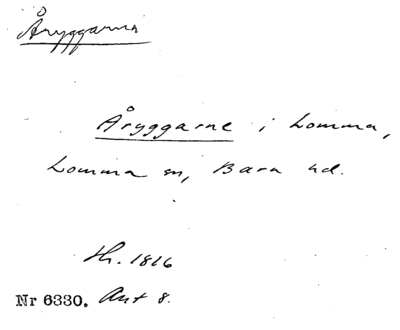 Åryggarna
Åryggarne i Lomma,
Lomma sn, Bara hd.
Hr. 1816
Nr 6330. Akt 8.